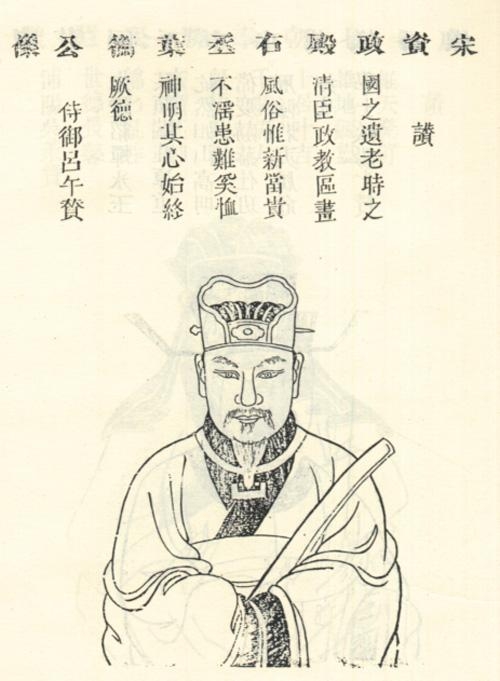 宋資政殿右丞葉公像
讚
國之遺老時之
清臣政教區畫
風俗惟新當貴
不滛患難奚恤
神明其心始終
厥德
侍御呂午贊